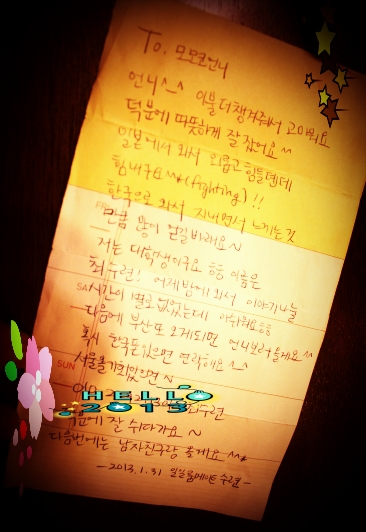 To. 모모코언니
언니^_^ 이불 더 챙겨줘서 고마워요
덕분에 따뜻하게 잘 잤어요^^
일본에서 와서 외롭고 힘들텐데
힘내구요 (fighting) !!
한국으로 와서 지내면서 느끼는것
만큼 많이 얻길 바래요~
저는 대학생이구요 ㅎㅎ 이름은
최수련! 어제밤에와서 이야기나눌
SA 시간이 별로 없었는데 아쉬워요ㅎㅎ
다음에 부산 또 오게되면 언니보러올게요^^
혹시 한국돈있으면 연락해요^_^
SUN 서울올기회있으면~
HELLO
2013
수련
덕분에 잘 쉬다가요~
다음번에는 남자친구랑 올게요
-2013.1.31 일일룸메이트 수련-